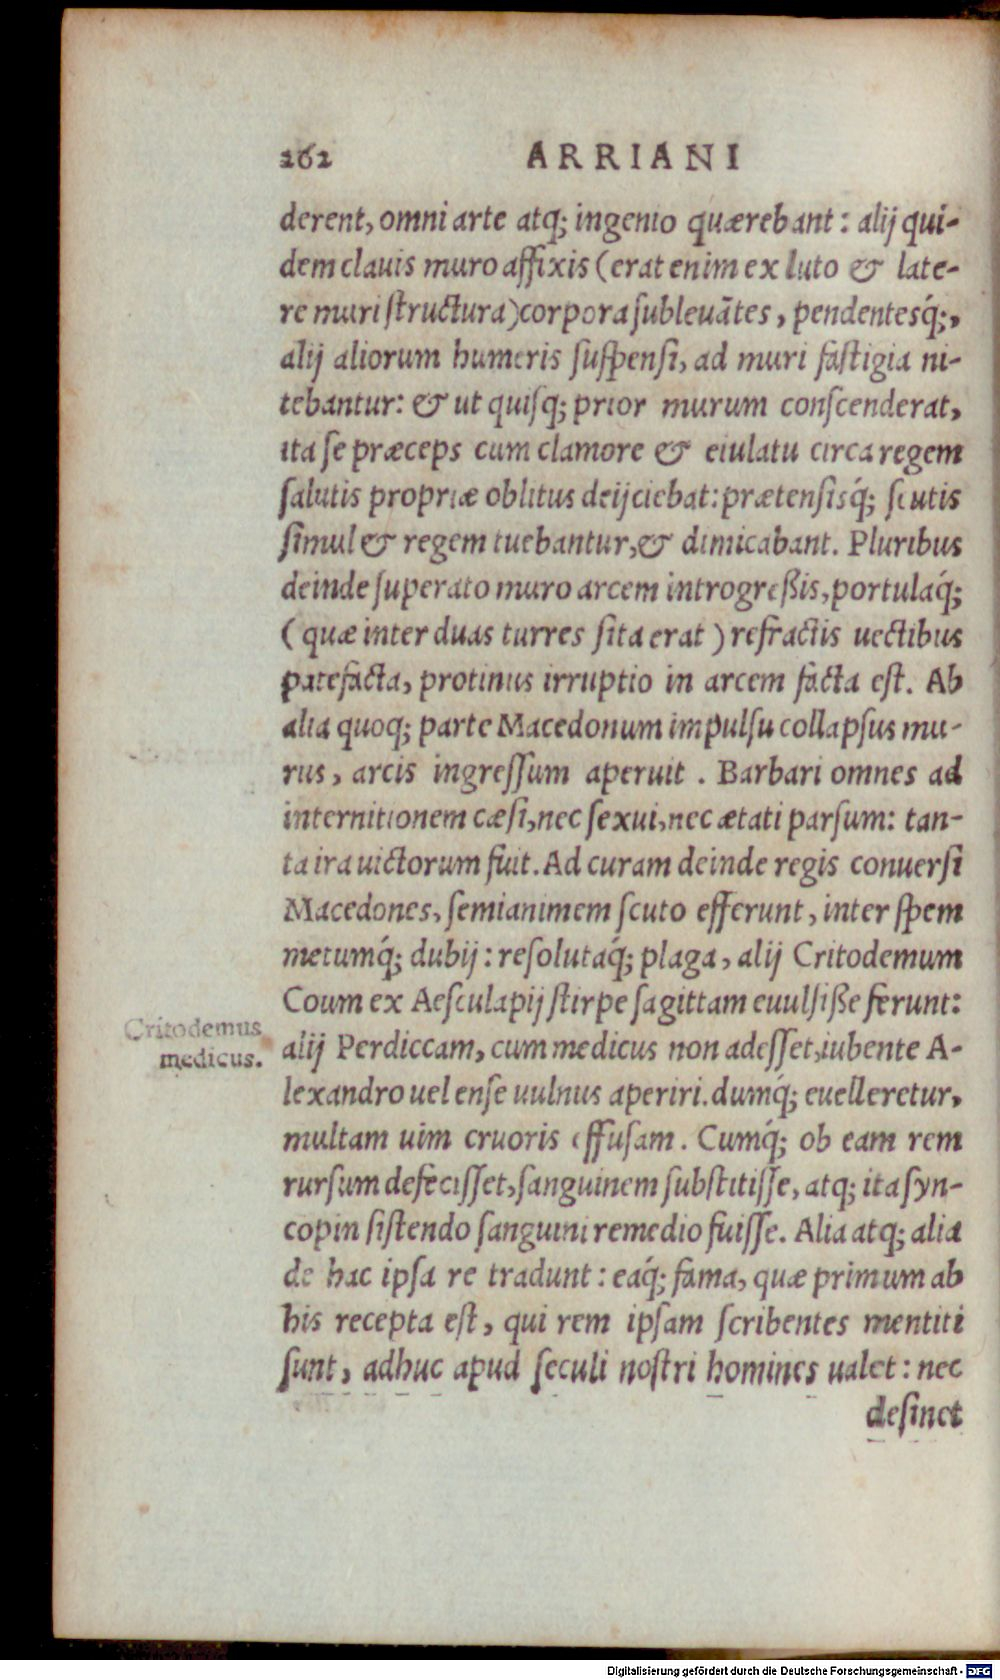 262 ARRIANI
derent, omni arte atq; ingenio quærebant: alij qui-
dem clauis muro affixis (erat enim ex luto & late-
re muri ſtructura) corpora ſubleuātes, pendentesq́;,
alij aliorum humeris ſuſpenſi, ad muri faſtigia ni-
tebantur: & ut quiſq; prior murum conſcenderat,
ita ſe præceps cum clamore & eiulatu circa regem
ſalutis propriæ oblitus deijciebat: prætenſisq́; ſcutis
ſimul & regem tuebantur, & dimicabant. Pluribus
deinde ſuperato muro arcem introgreßis, portulaq́;
(quæ inter duas turres ſita erat) refractis uectibus
patefacta, protinus irruptio in arcem facta eſt. Ab
alia quoq; parte Macedonum impulſu collapſus mu-
rus, arcis ingreſſum aperuit. Barbari omnes ad
internitionem cæſi, nec ſexui, nec ætati parſum: tan-
ta ira uictorum fuit. Ad curam deinde regis conuerſi
Macedones, ſemianimem ſcuto efferunt, inter ſpem
metumq́; dubij: reſolutaq́; plaga, alij Critodemum
Coum ex Aeſculapij ſtirpe ſagittam euulſiße ferunt:
Critodemus
medicus.
alij Perdiccam, cum medicus non adeſſet, iubente A-
lexandro uel enſe uulnus aperiri. dumq́; euelleretur,
multam uim cruoris effuſam. Cumq́; ob eam rem
rurſum defeciſſet, ſanguinem ſubſtitiſſe, atq; ita ſyn-
copin ſiſtendo ſanguini remedio fuiſſe. Alia atq; alia
de hac ipſa re tradunt: eaq́; fama, quæ primum ab
his recepta eſt, qui rem ipſam ſcribentes mentiti
ſunt, adhuc apud ſeculi noſtri homines ualet: nec
deſinet
Digitalisierung gefördert durch die Deutsche Forschungsgemeinschaft - DFG